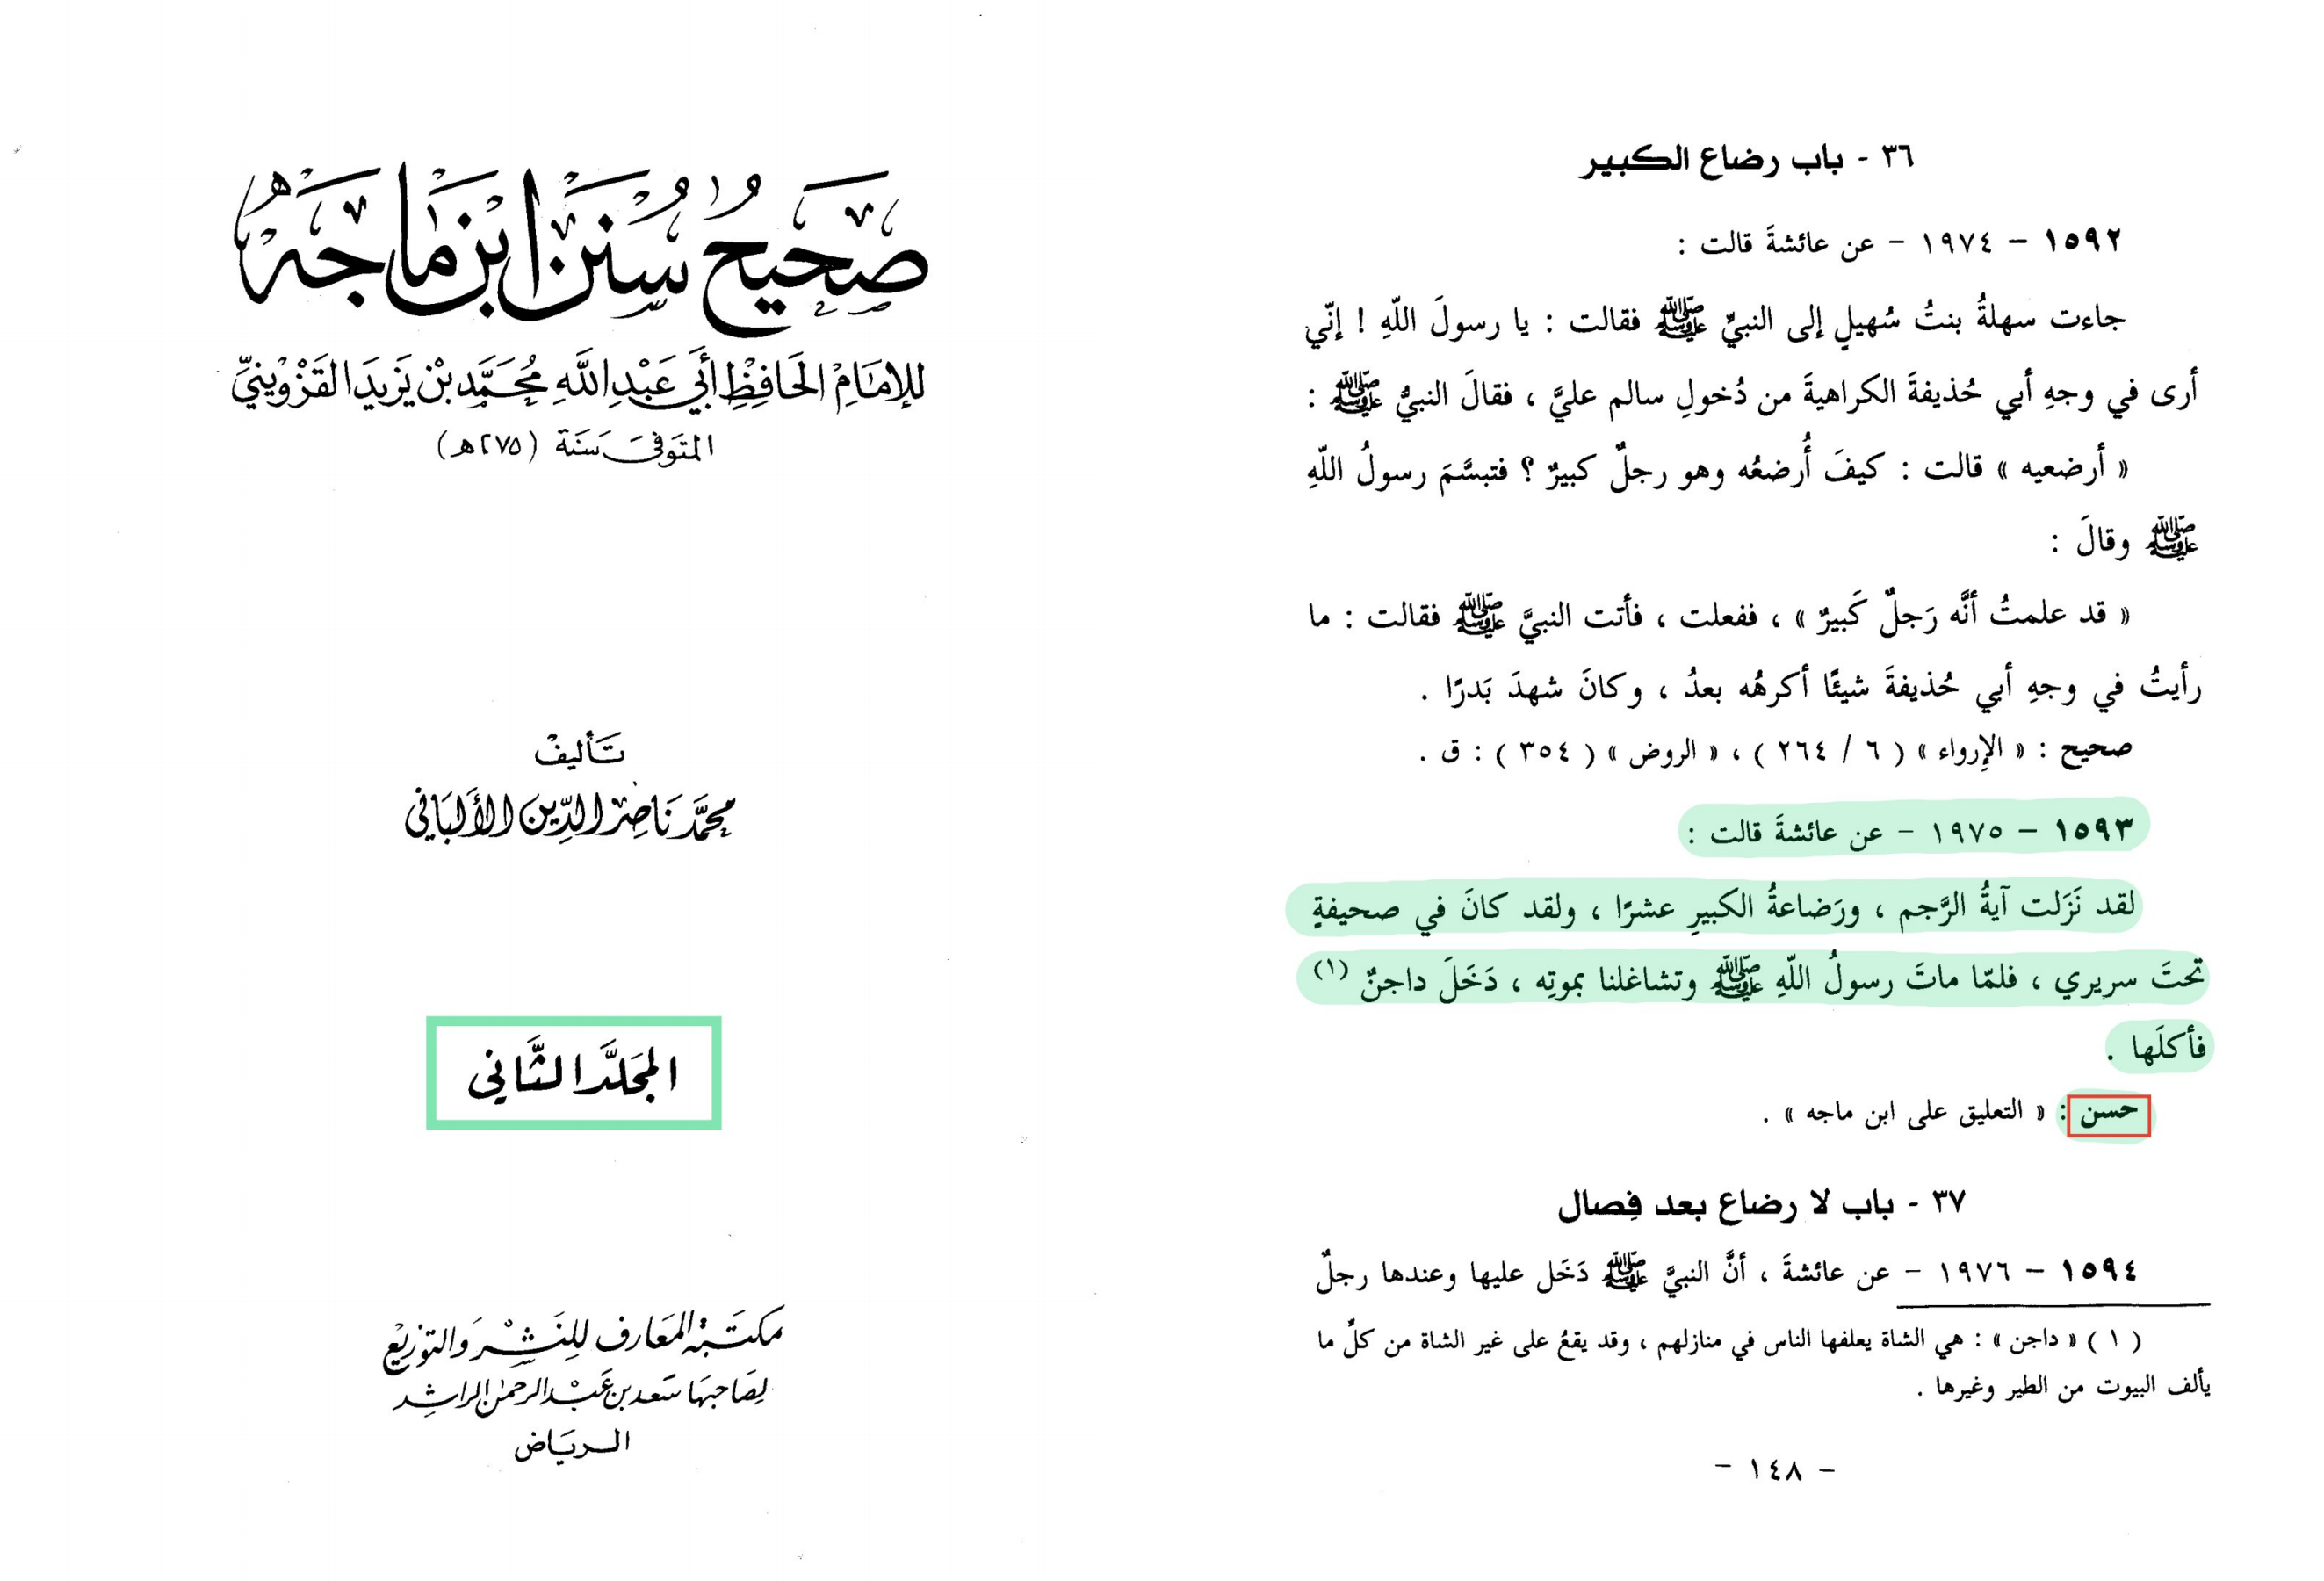 صَحِيحُ سُنَنِ ابْنِ مَاجَهْ
لِلإِمَامِ الحَافِظِ أَبِي عَبْدِ اللَّهِ مُحَمَّد بْنِ يَزِيدَ القَزْوِينِيِّ
المتَوَفىَ سَنَة (٢٧٥هـ)
تَأليفْ
محمَّد نَاصِر الدِّين الأَلبَاني
المجَلَّد الثَّاني
مكتَبة المعَارف لِلنَشِرْ وَالتوزيعْ
لِصَاحبهَا سَعد بن عَبْد الرحمٰن الراشِد
الريَاض
٣٦ - باب رضاع الكبير
١٥٩٢ – ١٩٧٤ – عن عائشةَ قالت :
جاءت سهلةُ بنتُ سُهيلٍ إلى النبيِّ ﷺ فقالت : يا رسولَ اللّهِ ! إنّي
أرى في وجهِ أبي حُذيفةَ الكراهيةَ من دُخولِ سالم عليَّ ، فقالَ النبيُّ ﷺ :
« أرضعيه » قالت : كيفَ أُرضعُه وهو رجلٌ كبيرٌ ؟ فتبسَّمَ رسولُ اللّهِ
ﷺ وقالَ :
« قد علمتُ أنَّه رَجلٌ كَبيرٌ » ، ففعلت ، فأتت النبيَّ ﷺ فقالت : ما
رأيتُ في وجهِ أبي حُذيفةَ شيئًا أكرهُه بعدُ ، وكانَ شهدَ بَدرًا .
صحيح : « الإرواء » ( ٦ / ٢٦٤ ) ، « الروض » ( ٣٥٤ ) : ق .
١٥٩٣ – ١٩٧٥ – عن عائشةَ قالت :
لقد نَزَلت آيةُ الرَّجم ، ورَضاعةُ الكبيرِ عشرًا ، ولقد كانَ في صحيفةٍ
تحتَ سريري ، فلمّا ماتَ رسولُ اللّهِ ﷺ وتشاغلنا بموتِه ، دَخَلَ داجنٌ (١)
فأكلَها .
حسن : « التعليق على ابن ماجه » .
٣٧ - باب لا رضاع بعد فِصال
١٥٩٤ – ١٩٧٦ – عن عائشةَ ، أنَّ النبيَّ ﷺ دَخَل عليها وعندها رجلٌ
( ١ ) « داجن » : هي الشاة يعلفها الناس في منازلهم ، وقد يقعُ على غير الشاة من كلِّ ما
يألف البيوت من الطير وغيرها .
– ١٤٨ –